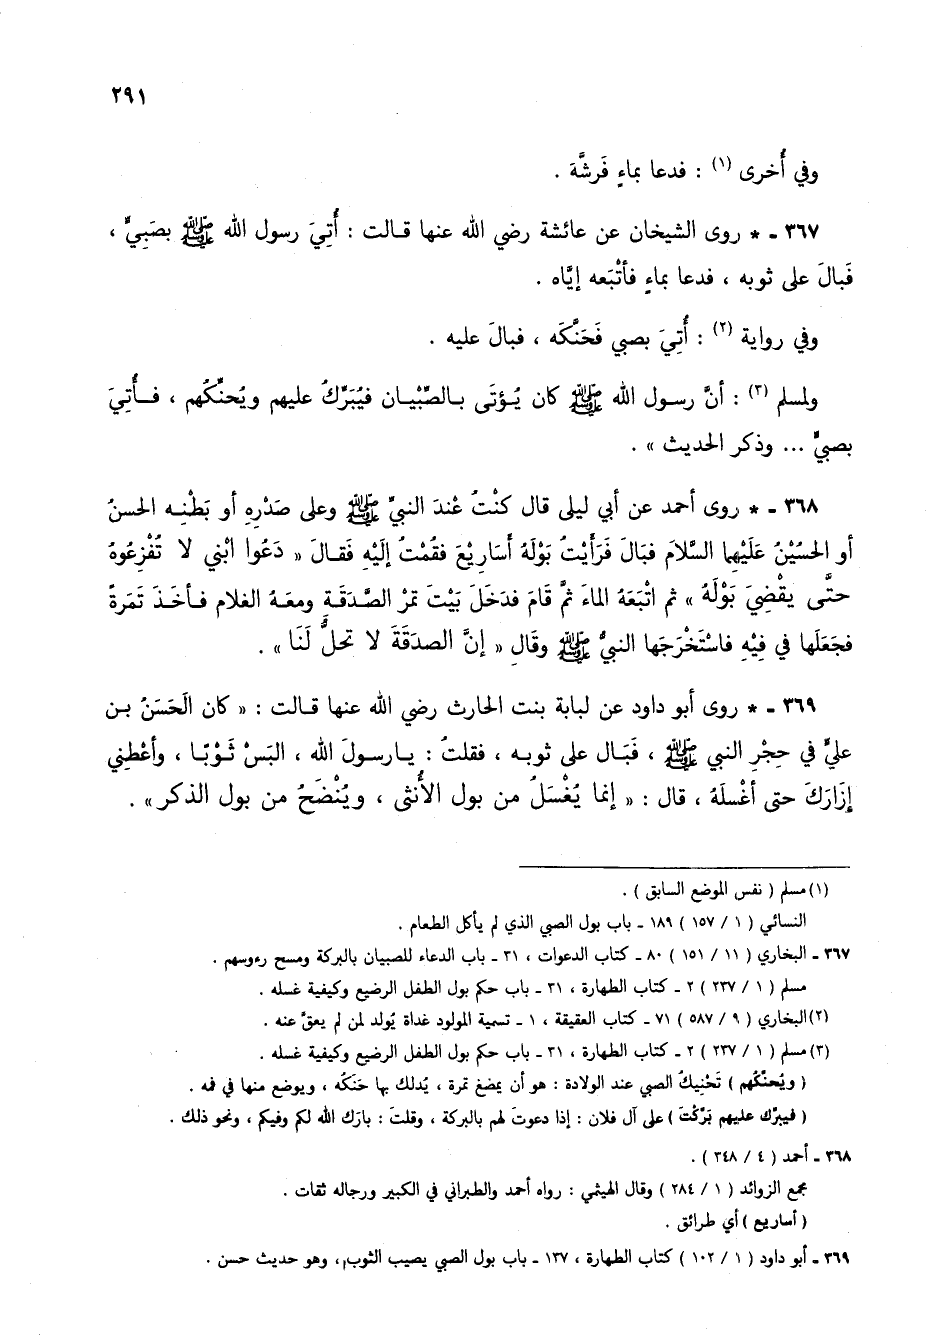 ٢٩١
وفي أُخرى (١) : فدعا بماءٍ فَرشَّهَ .
٣٦٧ - * روى الشيخان عن عائشة رضي الله عنها قالت : أُتِيَ رسول الله ﷺ بصَبيٍّ ،
فَبالَ على ثوبه ، فدعا بماءٍ فأتْبَعه إيَّاه .
وفي رواية (٢) : أُتِيَ بصبي فَحَنَّكَه ، فبالَ عليه .
ولمسلم (٣) : أنَّ رسول الله ﷺ كان يُؤتَى بالصِّبْيان فيُبَرِّكُ عليهم ويُحنِّكُهم ، فأُتِيَ
بصبيٍّ ... وذكر الحديث » .
٣٦٨ - * روى أحمد عن أبي ليلى قال كنْتُ عْندَ النبيِّ ﷺ وعلى صَدْرِهِ أو بَطْنِه الحسنُ
أو الحسُيْنُ عَلَيْهما السَّلامَ فبَالَ فَرَأيْتُ بَوْلَهُ أسَارِيْعَ فقُمْتُ إلَيْهِ فَقالَ « دَعُوا ابْني لا تُفْزِعُوهُ
حتَّى يقْضِيَ بَوْلَهُ » ثم اتْبَعَهُ الماءَ ثمَّ قَامَ فدَخَلَ بَيْتَ تمْرِ الصَّدَقَةِ ومعَهُ الغلام فأخَذَ تَمَرةً
فجَعَلَها في فِيْهِ فاسْتَخْرَجَها النبيُّ ﷺ وقَالِ « إنَّ الصدَقَةَ لا تحلُّ لَنَا » .
٣٦٩ - * روى أبو داود عن لبابة بنت الحارث رضي الله عنها قالت : « كان الَحَسَنُ بن
عليٍّ في حِجْرِ النبي ﷺ ، فَبَال على ثوبه ، فقلتُ : يارسولَ الله ، البَسْ ثَوْبًا ، وأعْطِني
إزَارَكَ حتى أغْسلَهُ ، قال : « إنما يُغْسَلُ من بول الأُنثى ، ويُنْضَحُ من بول الذكر» .
(١) مسلم ( نفس الموضع السابق ) .
النسائي ( ١ / ١٥٧ ) ١٨٩ - باب بول الصبي الذي لم يأكل الطعام .
٣٦٧ - البخاري ( ١١ / ١٥١ ) ٨٠ - كتاب الدعوات ، ٣١ - باب الدعاء للصبيان بالبركة ومسح رءوسهم .
مسلم ( ١ / ٢٣٧ ) ٢ - كتاب الطهارة ، ٣١ - باب حكم بول الطفل الرضيع وكيفية غسله .
(٢) البخاري ( ٩ / ٥٨٧ ) ٧١ - كتاب العقيقة ، ١ - تسمية المولود غداة يُولد لمن لم يعقَّ عنه .
(٣) مسلم ( ١ / ٢٣٧ ) ٢ - كتاب الطهارة ، ٣١ - باب حكم بول الطفل الرضيع وكيفية غسله .
( ويُحنِّكُهم ) تَحْنِيكُ الصبي عند الولادة : هو أن يمضغ تمرة ، يُدلك بها حَنَكُه ، ويوضع منها في فمه .
( فيبرِّك عليهم بَرَّكْتَ ) على آل فلان : إذا دعوتَ لهم بالبركة ، وقلتَ : بارَك الله لكم وفيكم ، ونحو ذلك .
٣٦٨ - أحمد ( ٤ / ٣٤٨ ) .
مجمع الزوائد ( ١ / ٢٨٤ ) وقال الهيثمي : رواه أحمد والطبراني في الكبير ورجاله ثقات .
( أساريع ) أي طرائق .
٣٦٩ - أبو داود ( ١ / ١٠٢ ) كتاب الطهارة ، ١٣٧ - باب بول الصبي يصيب الثوب ، وهو حديث حسن .